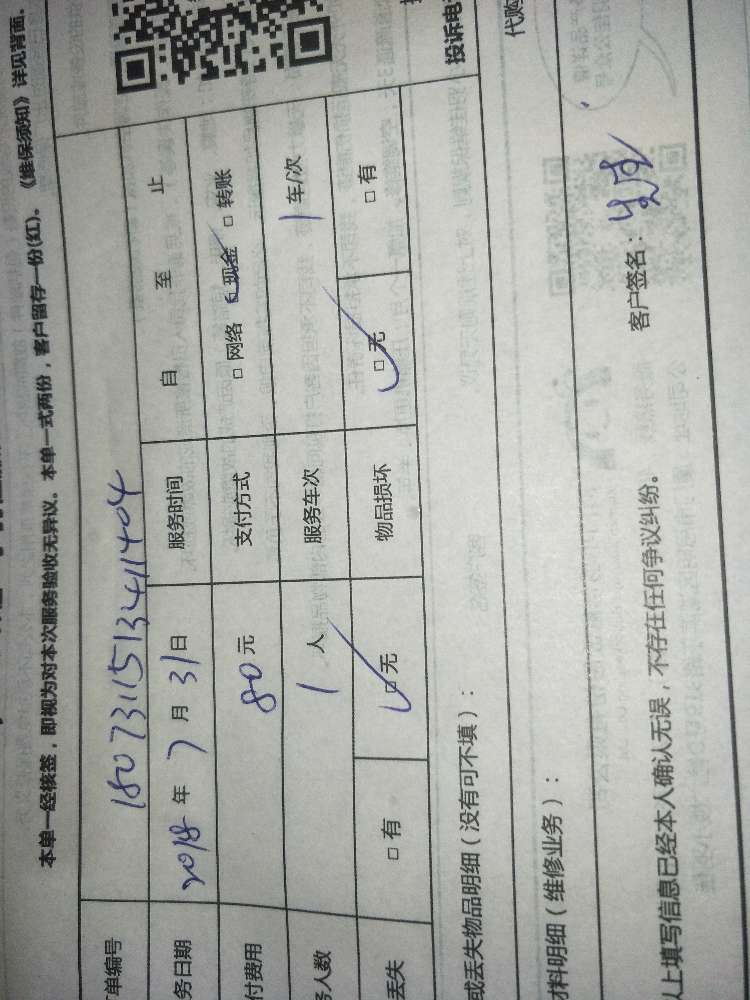 本单一经核签，即视为对本次服务验收无异议。本单一式两份，客户留存一份(红)。《维保须知》详见背面。
单编号 180731151341404
务日期 2018 年 7 月 31 日 服务时间 自 至 止
付费用 80 元 支付方式 □ 网络 □ 现金 □ 转账
务人数 1 人 服务车次 1 车/次
丢失 □ 有 □ 无 物品损坏 □ 无 □ 有
投诉电
或丢失物品明细（没有可不填）：
代购
材料明细（维修业务）：
以上填写信息已经本人确认无误，不存在任何争议纠纷。 客户签名：